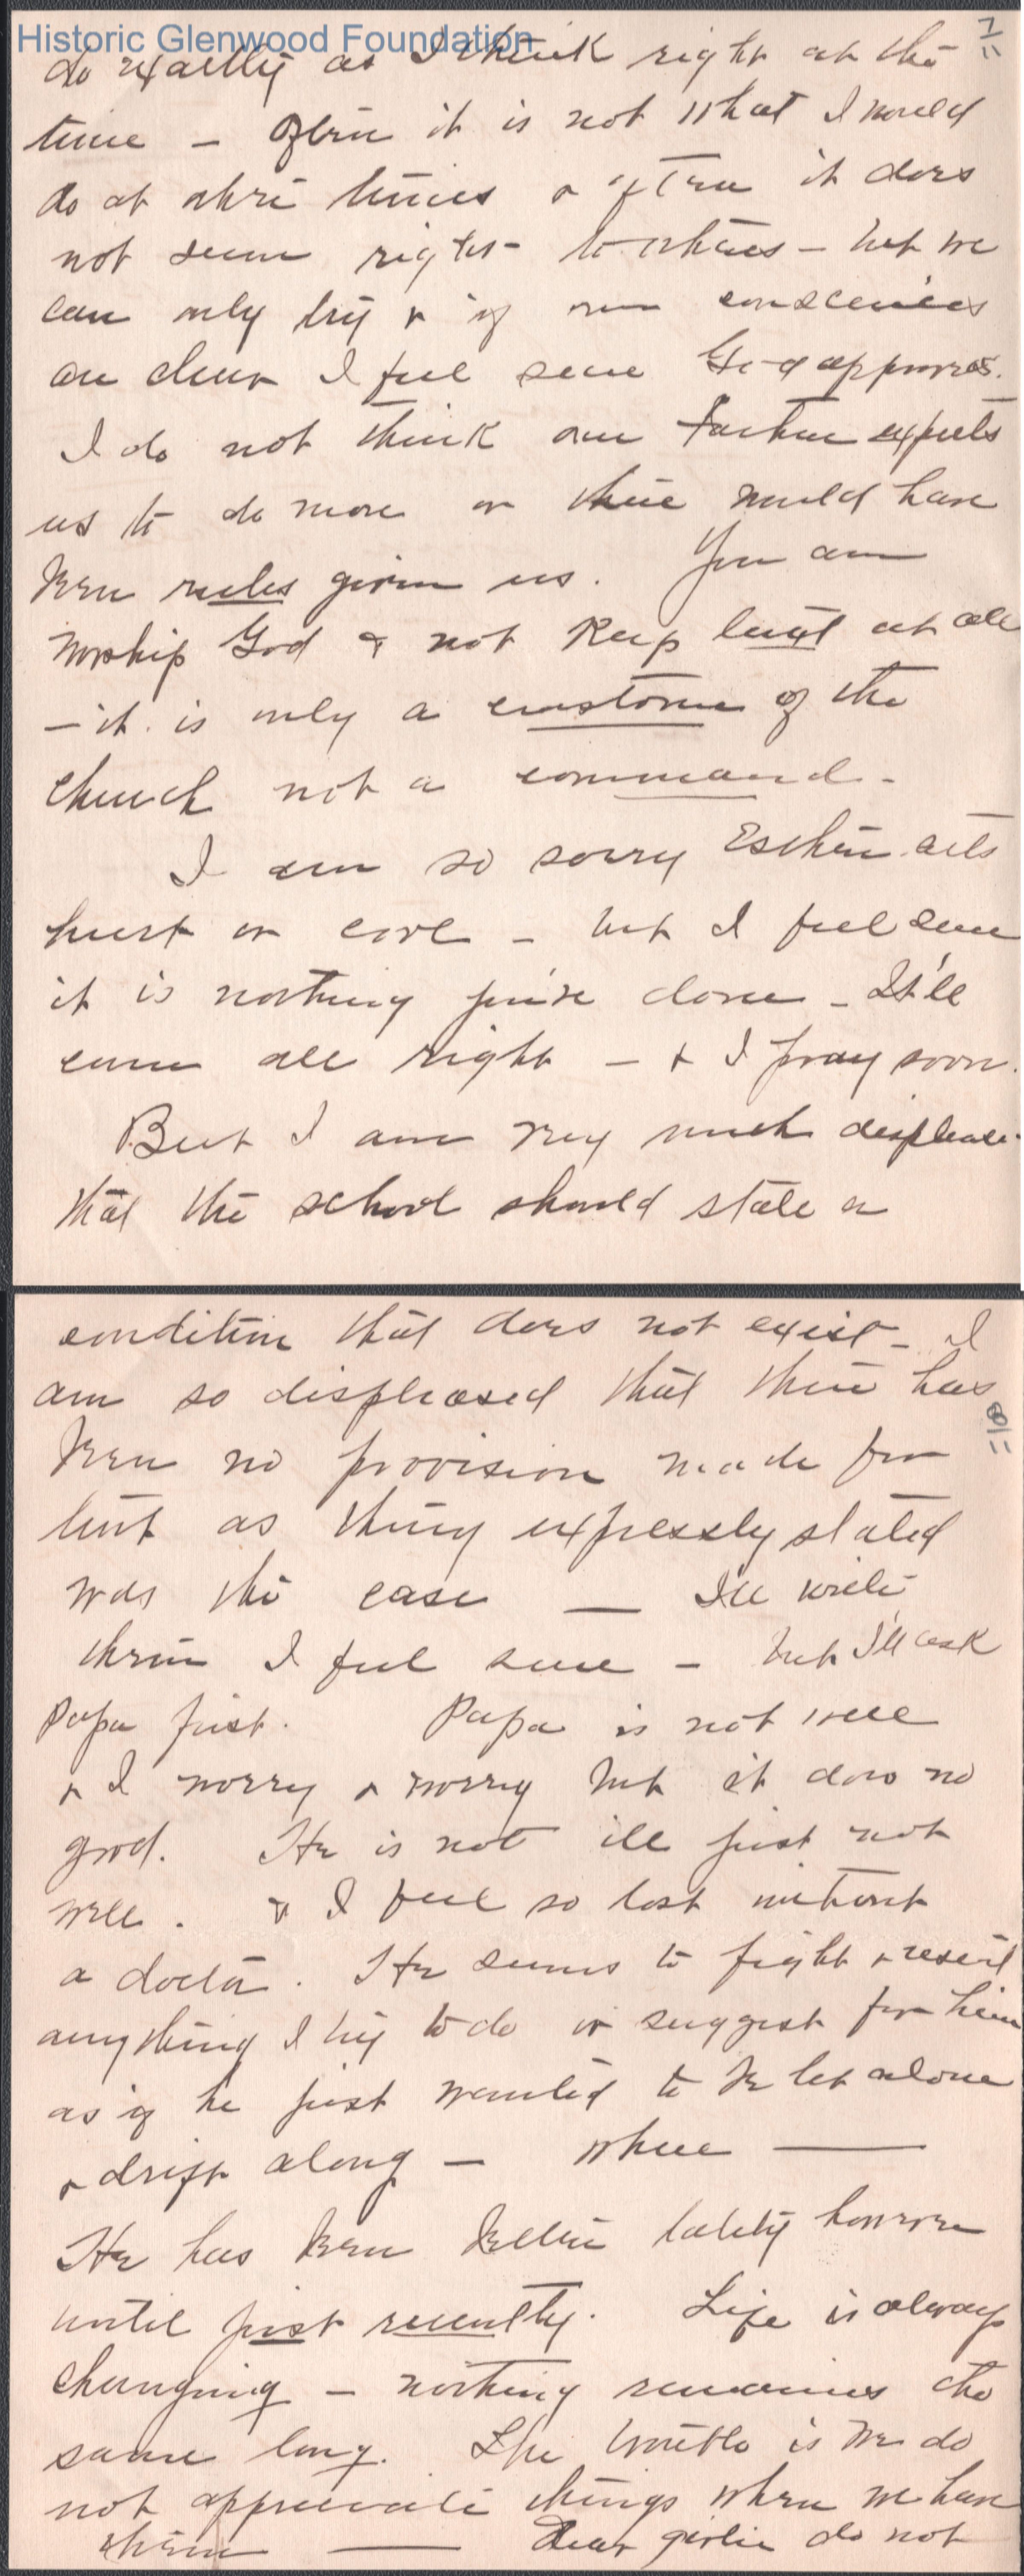 Historic Glenwood Foundation
7/
do exactly as I think right at the
time - Often it is not what I would
do at other times & often it does
not seem right to others - but we
can only try & if our consciences
are clear I feel sure God approves.
I do not think our Father expects
us to do more or there would have
been rules given us. You can
worship God & not keep lent at all
- it is only a custom of the
church not a command -
I am so sorry Esther acts
hurt or cool - but I feel sure
it is nothing you've done - It'll
come all right - & I pray soon.
But I am very much displeased
that the school should state a
condition that does not exist - I
am so displeased that there has
8/
been no provision made for
lent as they expressly stated
was the case — I'll write
them I feel sure - but I'll ask
Papa first. Papa is not well
& I worry & worry but it does no
good. He is not ill just not
well. & I feel so lost without
a doctor. He seems to fight & resent
anything I try to do or suggest for him
as if he just wanted to be let alone
& drift along - where —
He has been better lately however
until just recently. Life is always
changing - nothing remains the
same long. The trouble is we do
not appreciate things when we have
them — Dear girlie do not